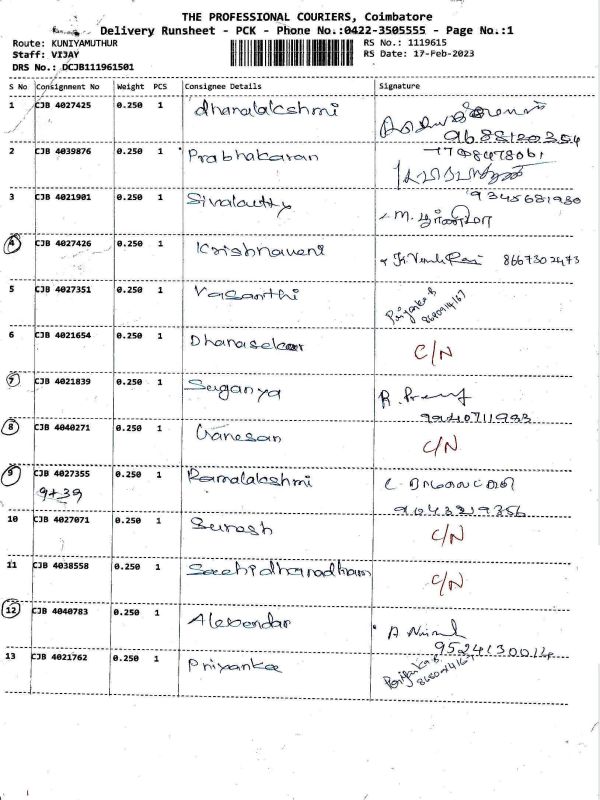 THE PROFESSIONAL COURIERS, Coimbatore
Delivery Runsheet - PCK - Phone No.:0422-3505555 - Page No.:1
Route: KUNIYAMUTHUR RS No.: 1119615
Staff: VIJAY RS Date: 17-Feb-2023
DRS No.: DCJB111961501
S No Consignment No Weight PCS Consignee Details Signature
1 CJB 4027425 0.250 1 dhanalakshmi
9688120354
2 CJB 4039876 0.250 1 Prabhakaran 7708478061
3 CJB 4021901 0.250 1 9345681980
M.
4 CJB 4027426 0.250 1 Krishnaveni 8667302473
5 CJB 4027351 0.250 1 Vasanthi Priyanka B
6 CJB 4021654 0.250 1 Dhanasekar C/N
7 CJB 4021839 0.250 1 Suganya R.
8 CJB 4040271 0.250 1 Ganesan C/N
9 CJB 4027355 0.250 1 Ramalakshmi
9+39
10 CJB 4027071 0.250 1 Suresh C/N
11 CJB 4038558 0.250 1 C/N
12 CJB 4040783 0.250 1 A
13 CJB 4021762 0.250 1 Priyanka Priyanka B